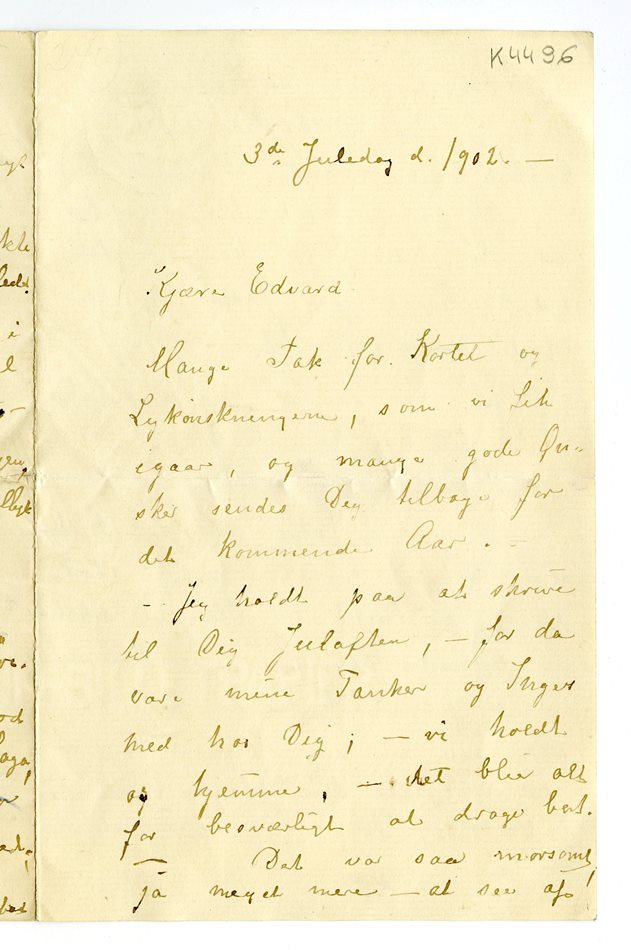 K4496
3de Juledag d. 1902. —
Kjære Edvard
Mange Tak for Kortet og
Lykønskningerne, som vi fik
igaar, og mange gode Øn-
sker sendes Dig tilbage for
det kommende Aar. —
— Jeg holdt paa at skrive
til Dig Julaften, — for da
vare mine Tanker og Inger
med hos Dig; — vi holdt
os hjemme, — det blir alt
for besværligt at drage bort.
— Det var saa morsomt,
ja meget mere — at see af!